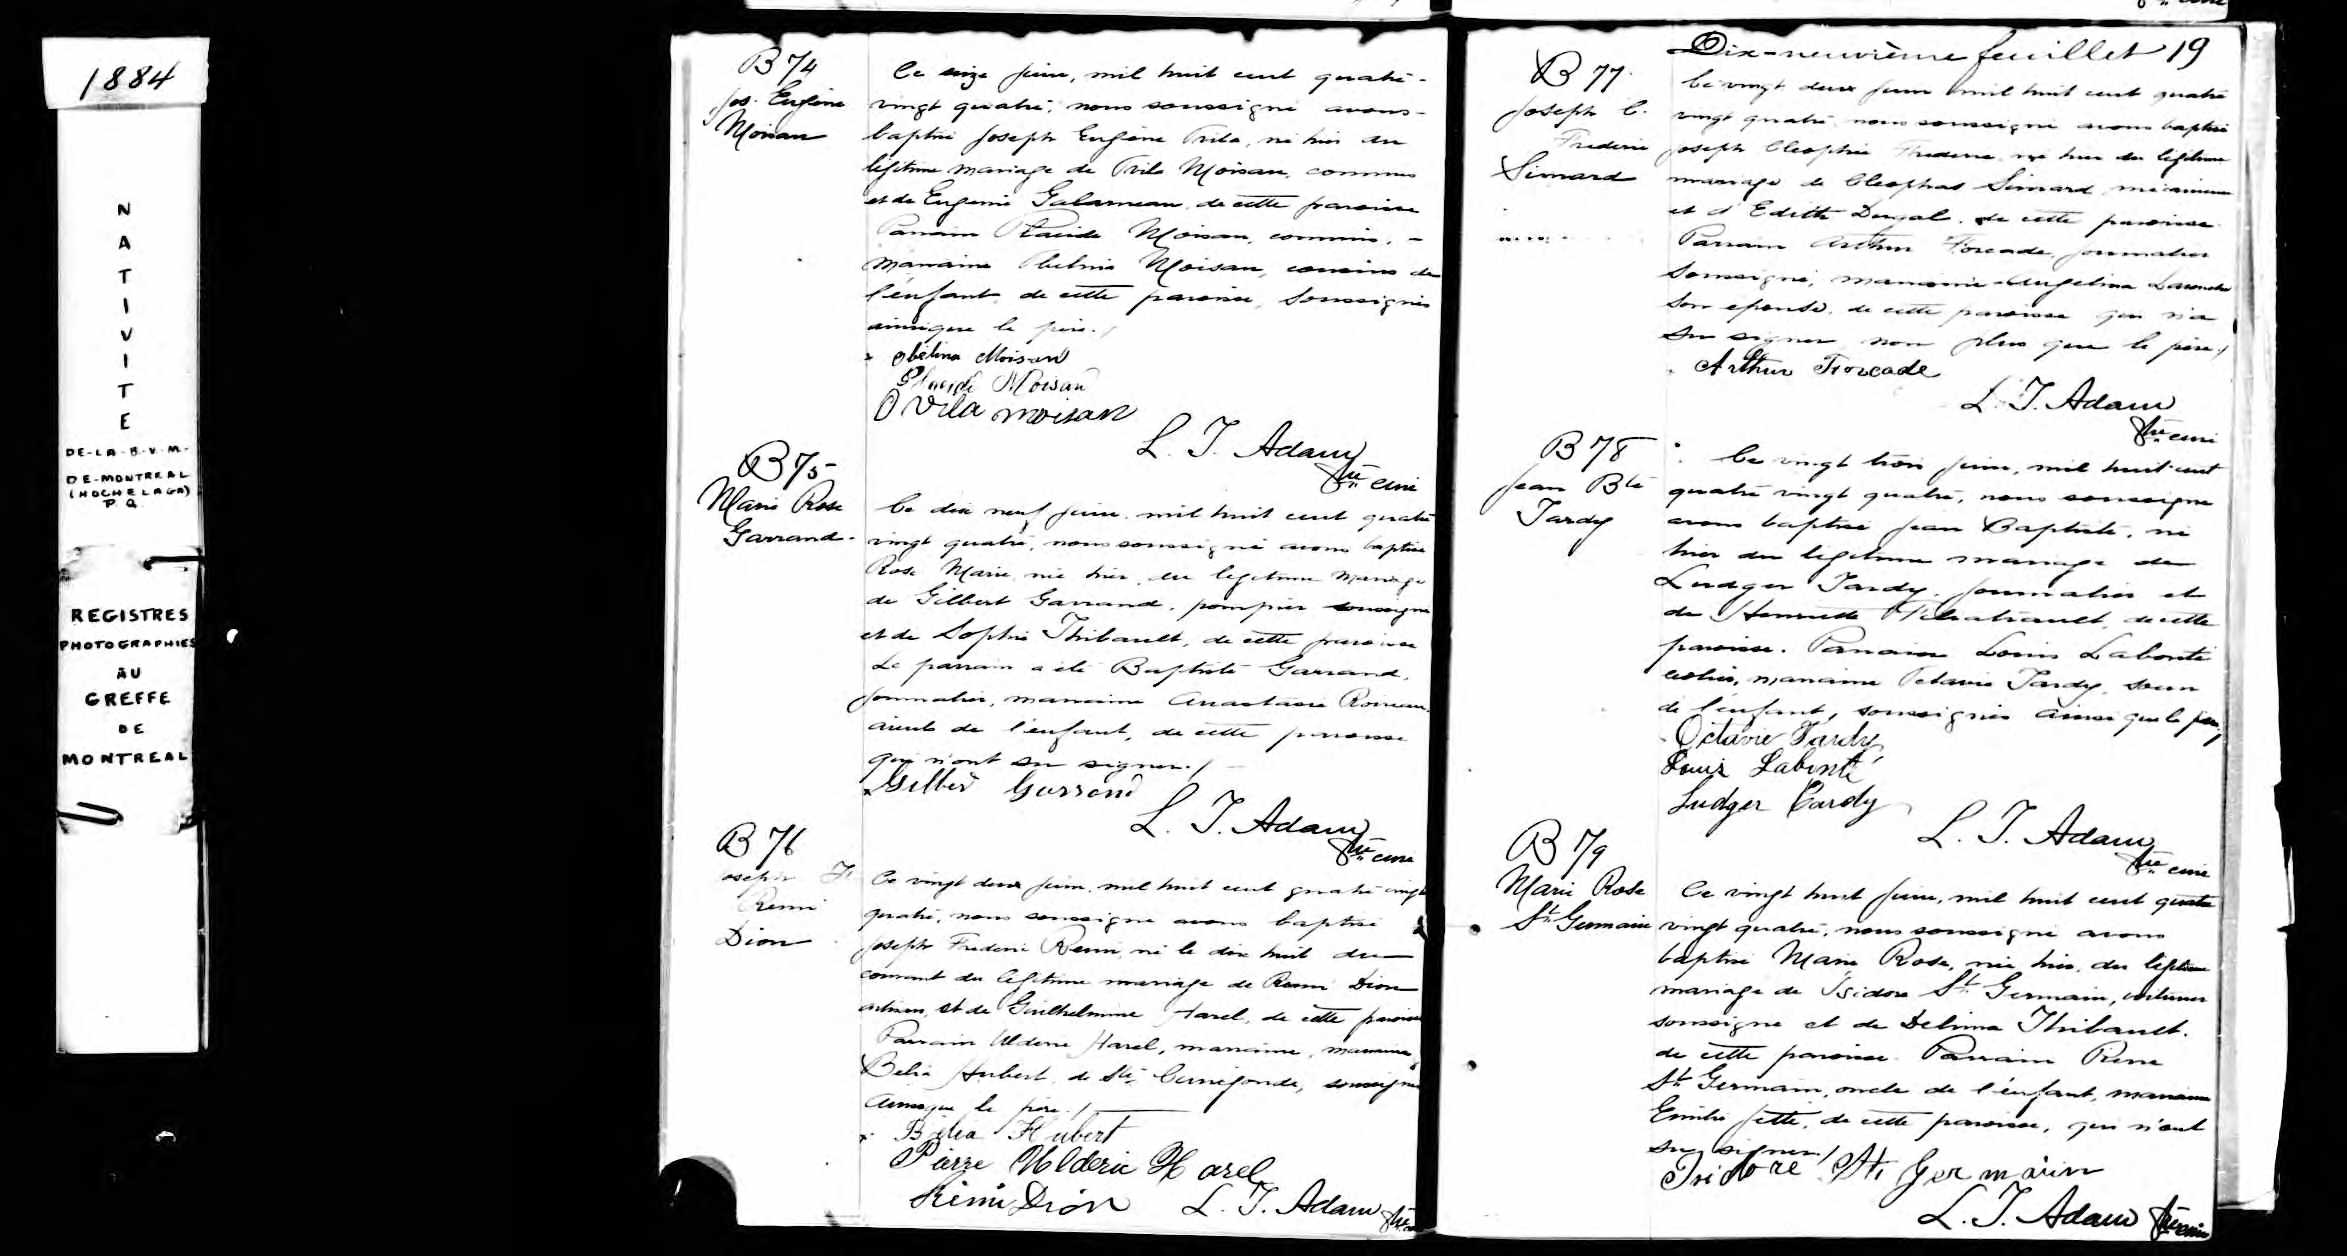 1884
NATIVITE
DE-LA-B.V.M.-
DE-MONTREAL
(HOCHELAGA)
P.Q.
REGISTRES
PHOTOGRAPHIES
AU
GREFFE
DE
MONTREAL
B 74
Jos. Eugène
Moisan
Ce seize juin, mil huit cent quatre-
vingt quatre, nous soussigné avons
baptisé Joseph Eugène Ovila, né hier du
légitime mariage de Ovila Moisan, commis
et de Eugénie Galarneau, de cette paroisse
Parrain Placide Moisan, commis, -
marraine Obelina Moisan, cousins de
l'enfant, de cette paroisse, soussignés
ainsique le père./
Obélina Moisan
Placide Moisan
Ovila Moisan
L. J. Adam
Ptre curé
B 75
Marie Rose
Garrand
Ce dix neuf juin, mil huit cent quatre
vingt quatre, nous soussigné avons baptisé
Rose Marie, née hier, du légitime mariage
de Gilbert Garrand, pompier soussigné
et de Sophie Thibault, de cette paroisse
Le parrain a été Baptiste Garrand,
journalier, marraine Anastasie
aieuls de l'enfant, de cette paroisse
qui n'ont su signer./
Gilber Garrand
L. J. Adam
Ptre curé
B 76
Joseph F.
Remi
Dion
Ce vingt deux juin, mil huit cent quatre vingt
quatre, nous soussigné avons baptisé
Joseph Frédéric Remi, né le dix huit du
courant du légitime mariage de Remi Dion
et de Guilhelmine Harel, de cette paroisse
Parrain Ulderic Harel, marraine, marraine
Bélia Hubert, de Ste Cunégonde, soussignés
ainsique le père./
Bélia Hubert
Pierre Ulderic Harel
Rémi Dion
L. J. Adam Ptre
Dix-neuvième feuillet 19
B 77
Joseph C.
Frederic
Simard
Ce vingt deux juin mil huit cent quatre
vingt quatre, nous soussigné avons baptisé
Joseph Cleophas Frederic, né hier du légitime
mariage de Cleophas Simard, mécanicien
et d'Edith Dugal, de cette paroisse.
Parrain Arthur Forcade, journalier
soussigné, marraine Angelina
son epouse, de cette paroisse qui n'a
su signer, non plus que le père./
Arthur Forcade
L. J. Adam
Ptre curé
B 78
Jean Bte
Tardy
Ce vingt trois juin, mil huit cent
quatre vingt quatre, nous soussigné
avons baptisé Jean Baptiste, né
hier du légitime mariage de
Ludger Tardy, journalier et
de Henriette de cette
paroisse. Parrain Louis Labonté
marraine Octavie Tardy, soeur
de l'enfant, soussignés ainsi que le père./
Octavie Tardy
Louis Labonté
Ludger Tardy
L. J. Adam
Ptre curé
B 79
Marie Rose
St Germain
Ce vingt huit juin, mil huit cent quatre
vingt quatre, nous soussigné avons
baptisé Marie Rose, née hier, du légitime
mariage de Isidore St Germain, voiturier
soussigné et de Delima Thibault.
de cette paroisse. Parrain Pierre
St Germain, oncle de l'enfant, marraine
Emilie Jetté, de cette paroisse, qui n'ont
su signer./
Isidore St Germain
L. J. Adam Ptre curé